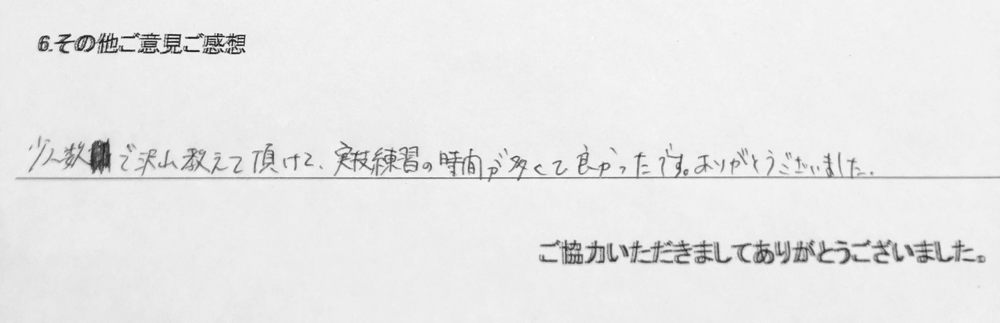 6.その他ご意見ご感想
少人数で沢山教えて頂けて、実技練習の時間が多くて良かったです。ありがとうございました。
ご協力いただきましてありがとうございました。